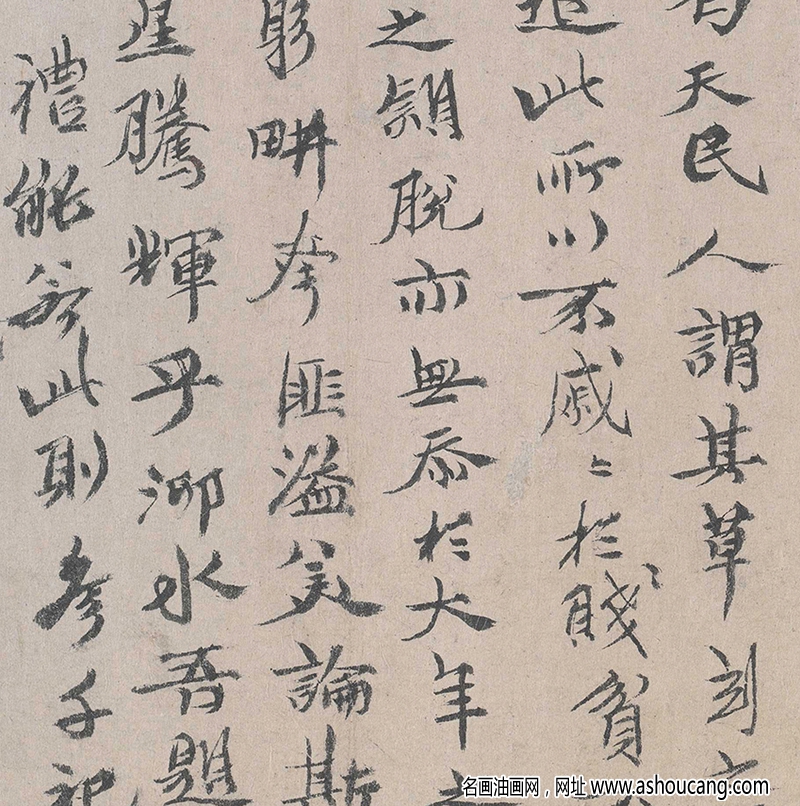 天民人謂其草刻
此所以不戚〻於賤貧
之頴脫亦無忝於大年之
躬畊匪溢美論斯
星騰輝乎泖水吾題
禮能若此則參千祀
名画油画网，网址 www.ashoucang.com